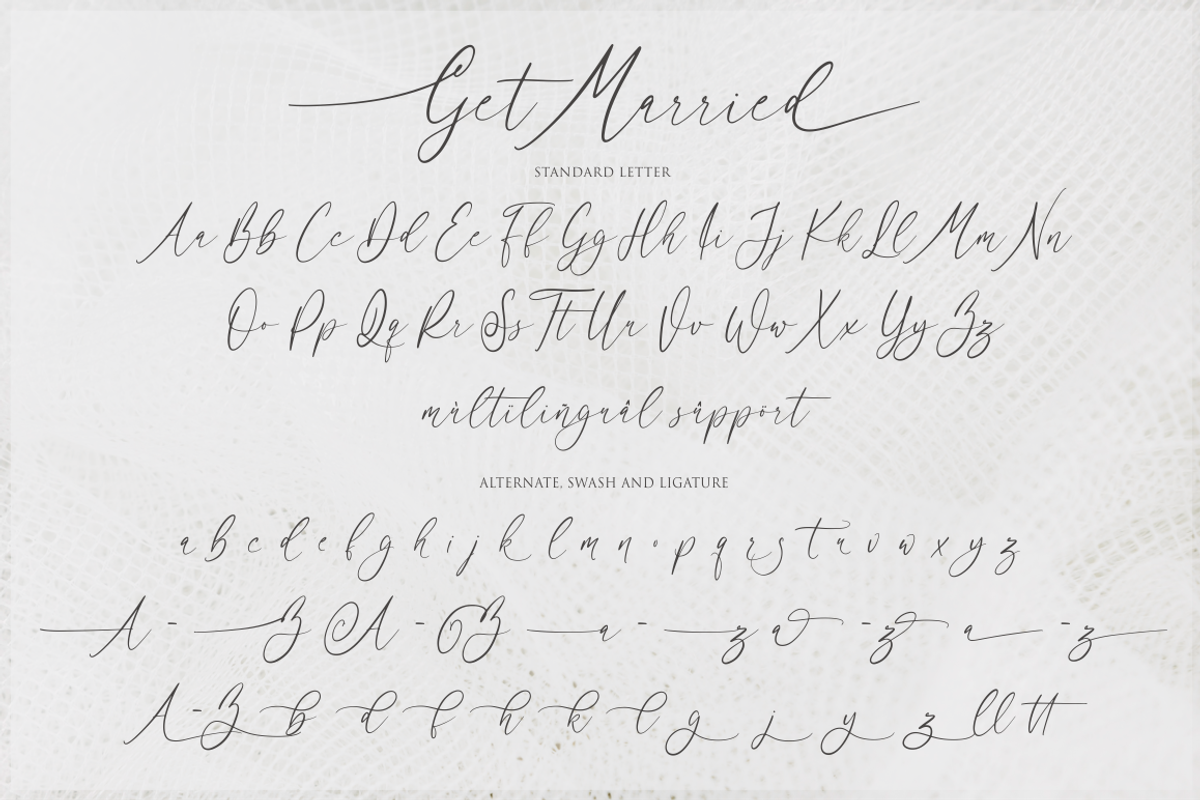 Get Married
STANDARD LETTER
Aa Bb Cc Dd Ee Ff Gg Hh Ii Jj Kk Ll Mm Nn
Oo Pp Qq Rr Ss Tt Uu Vv Ww Xx Yy Zz
mùltïlíñguâl sûppört
ALTERNATE, SWASH AND LIGATURE
a b c d e f g h i j k l m n o p q r s t u v w x y z
A - Z A - Z a - z a - z a - z
A - Z b d f h k l g j y z ll tt